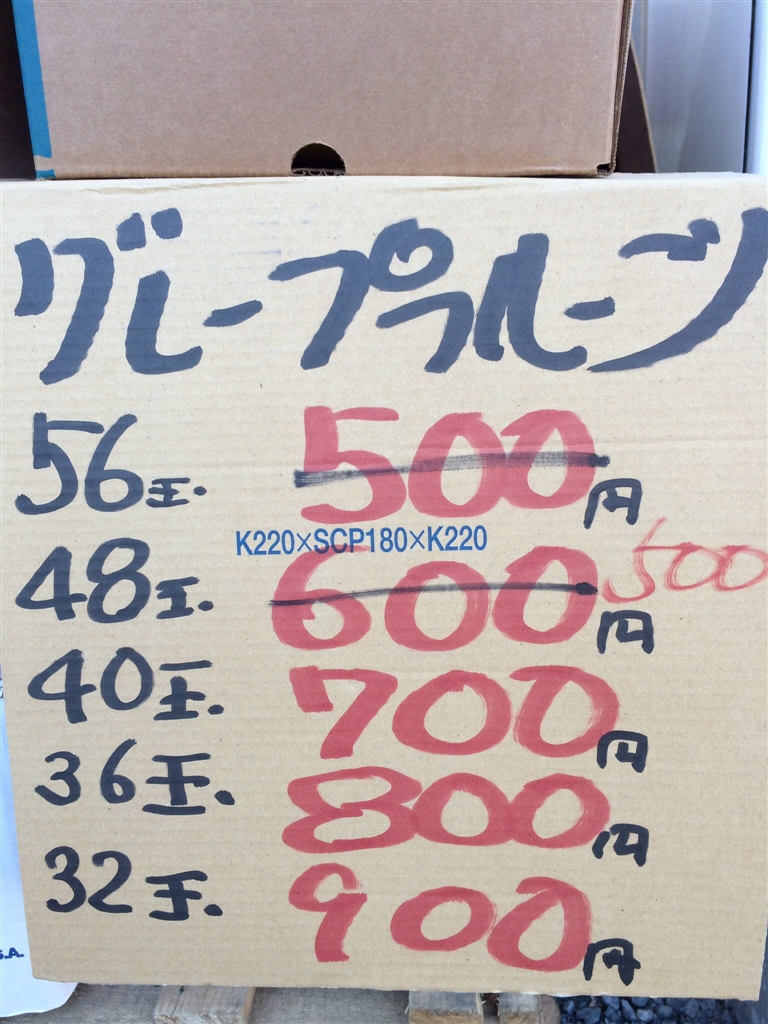 グレープフルーツ
56玉. 500円
K220×SCP180×K220
500
48玉. 600円
40玉. 700円
36玉. 800円
32玉. 900円
S.A.